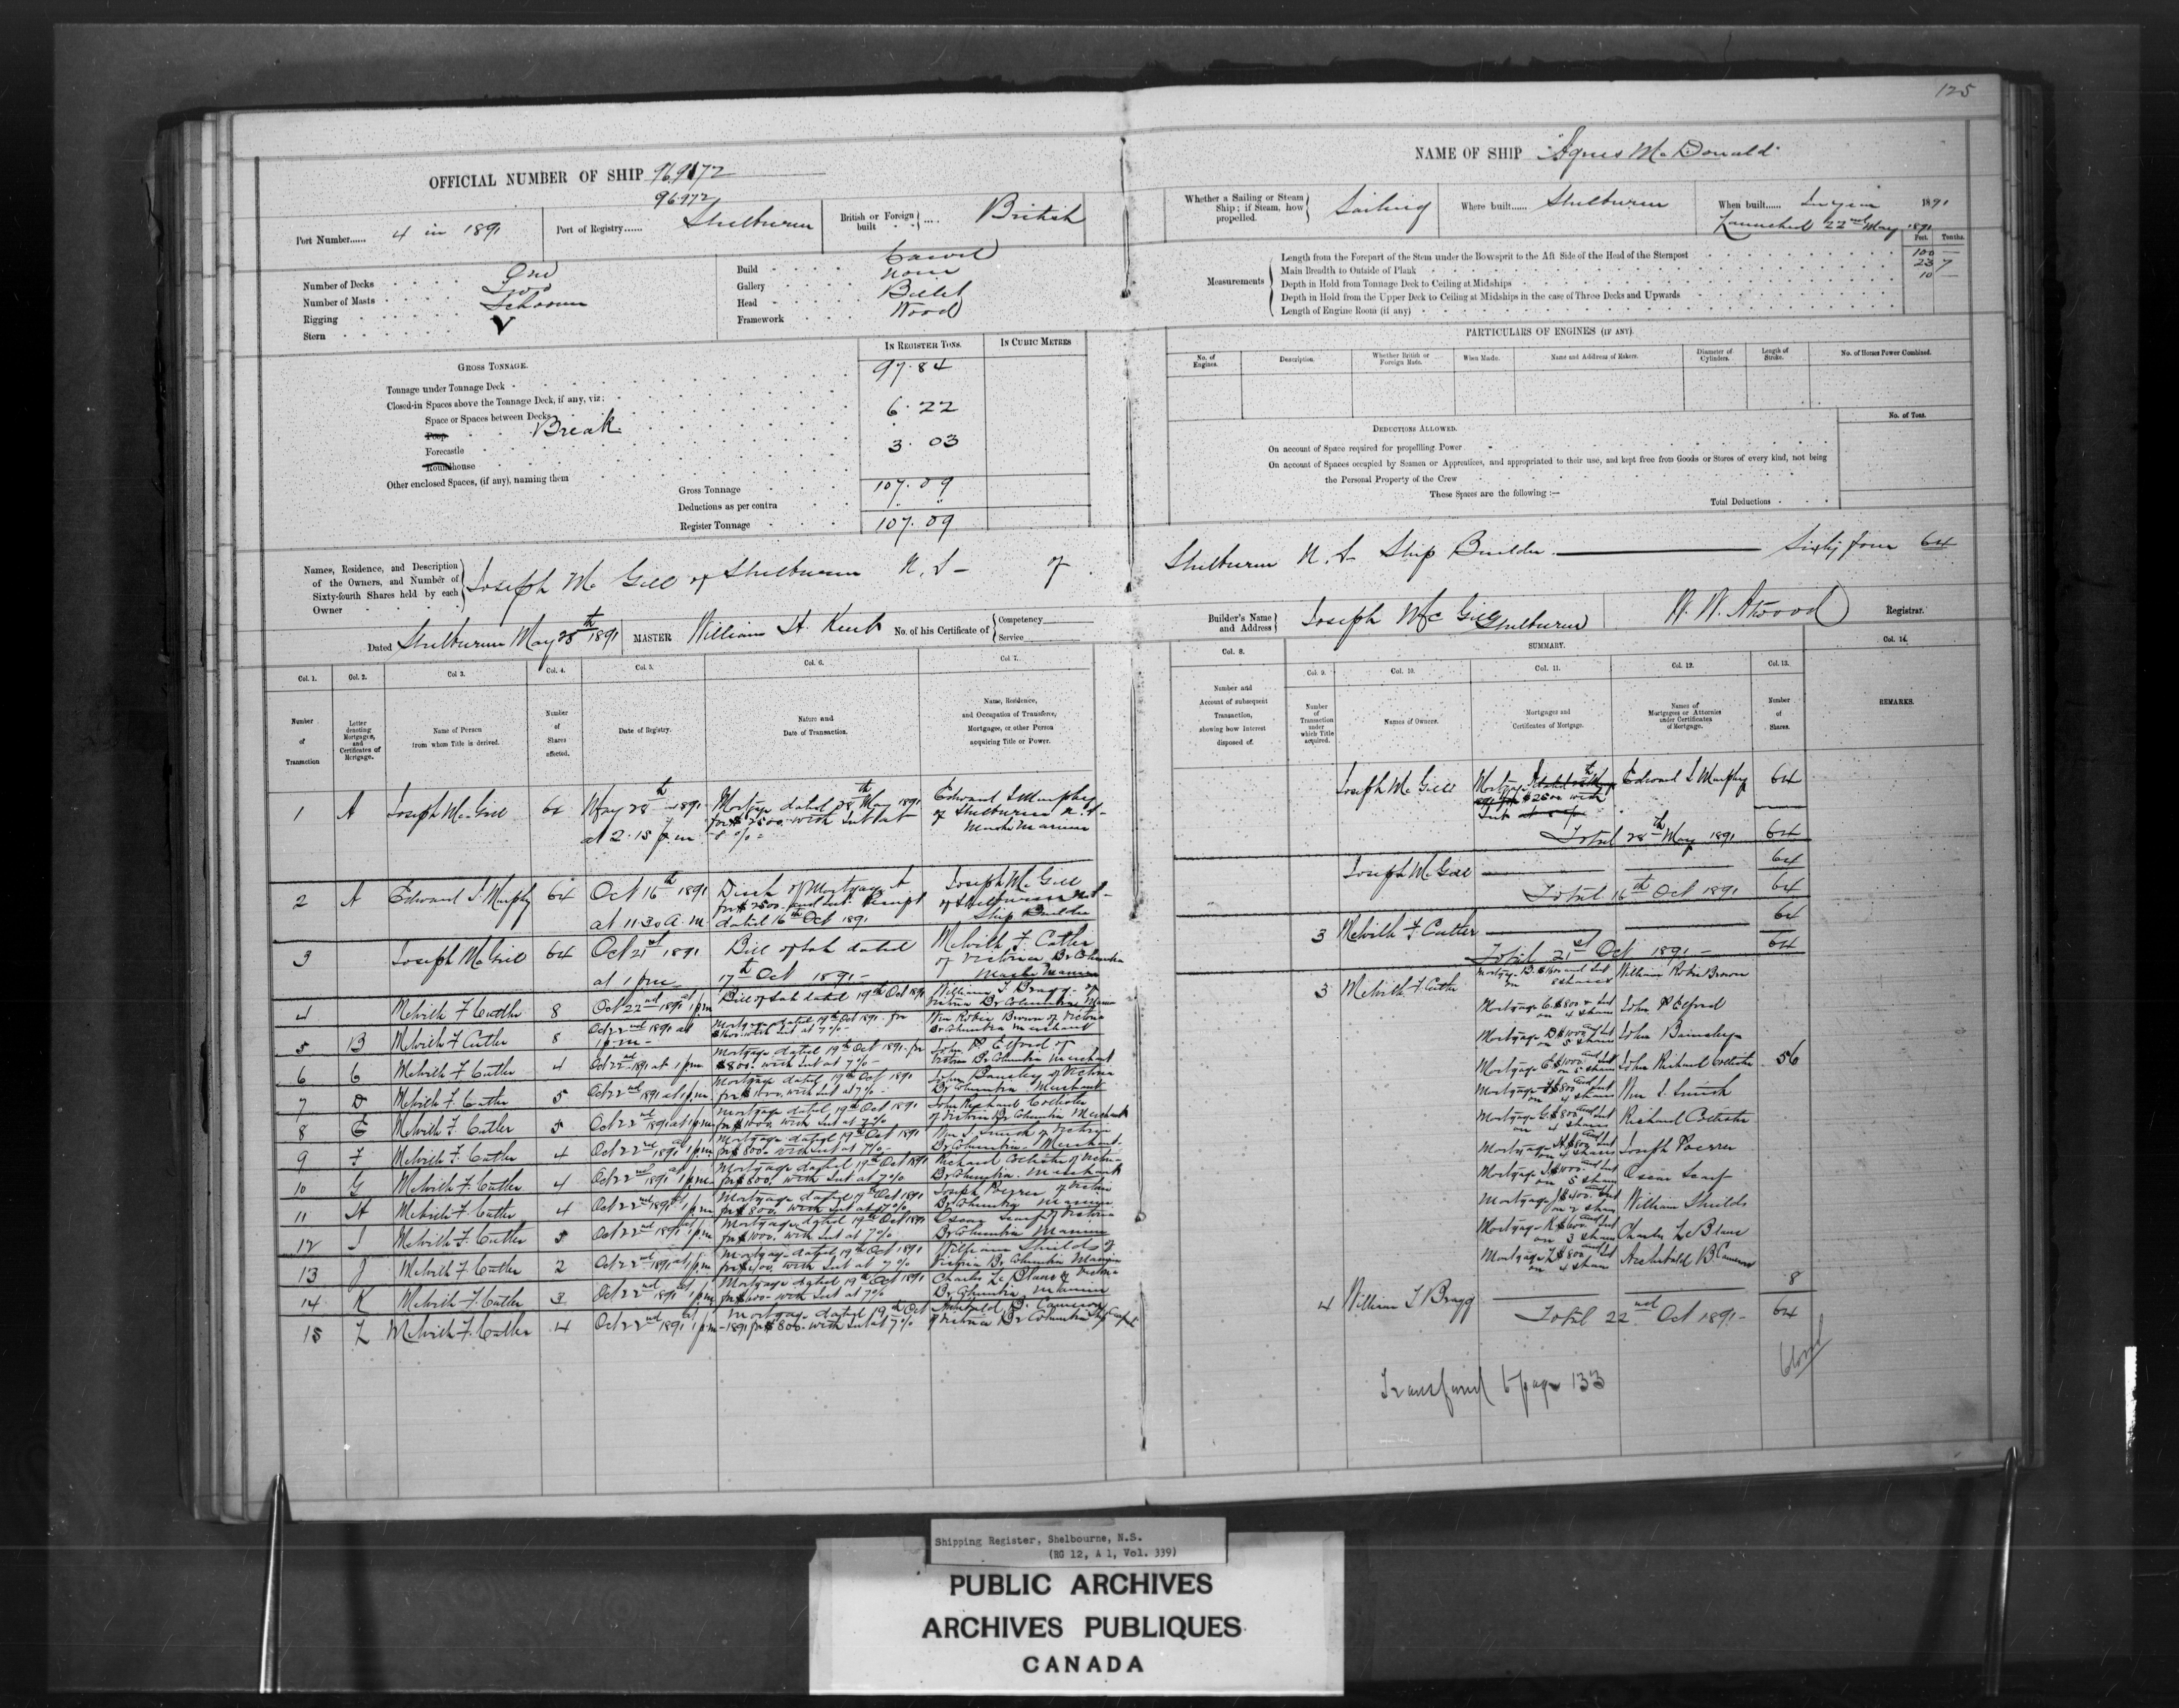 125
OFFICIAL NUMBER OF SHIP 96,972
96.972
NAME OF SHIP "Agnes McDonald"
Port Number...... 4 in 1891
Port of Registry...... Shelburne
British or Foreign built .... British
Whether a Sailing or Steam Ship; if Steam, how propelled. Sailing
Where built...... Shelburne
When built...... In year 1891
Launched 22nd May 1891
Number of Decks One
Number of Masts Two
Rigging Schooner
Stern
Build Carvel
Gallery None
Head Billet
Framework Wood
Feet. Tenths.
Measurements
Length from the Forepart of the Stem under the Bowsprit to the Aft Side of the Head of the Sternpost 100 —
Main Breadth to Outside of Plank 23 7
Depth in Hold from Tonnage Deck to Ceiling at Midships 10 —
Depth in Hold from the Upper Deck to Ceiling at Midships in the case of Three Decks and Upwards
Length of Engine Room (if any)
GROSS TONNAGE.
IN REGISTER TONS.
IN CUBIC METRES
Tonnage under Tonnage Deck 97.84
Closed-in Spaces above the Tonnage Deck, if any, viz:
Space or Spaces between Decks
Poop Break 6.22
Forecastle 3.03
Roundhouse
Other enclosed Spaces, (if any), naming them
Gross Tonnage 107.09
Deductions as per contra
Register Tonnage 107.09
PARTICULARS OF ENGINES (IF ANY).
No. of Engines.
Description.
Whether British or Foreign Made.
When Made.
Name and Address of Makers.
Diameter of Cylinders.
Length of Stroke.
No. of Horses Power Combined.
No. of Tons.
DEDUCTIONS ALLOWED.
On account of Space required for propelling Power
On account of Spaces occupied by Seamen or Apprentices, and appropriated to their use, and kept free from Goods or Stores of every kind, not being
the Personal Property of the Crew
These Spaces are the following :—
Total Deductions
Names, Residence, and Description of the Owners, and Number of Sixty-fourth Shares held by each Owner
Joseph McGill of Shelburne N.S. of Shelburne N.S. Ship Builder — Sixty four 64
Dated Shelburne May 28th 1891
MASTER William H. Keub
No. of his Certificate of Competency Service
Builder's Name and Address Joseph McGill Shelburne
W. W. Atwood Registrar.
SUMMARY.
Col. 1. Number of Transaction
Col. 2. Letter denoting Mortgages, and Certificates of Mortgage.
Col. 3. Name of Person from whom Title is derived.
Col. 4. Number of Shares affected.
Col. 5. Date of Registry.
Col. 6. Nature and Date of Transaction.
Col. 7. Name, Residence, and Occupation of Transferee, Mortgagee, or other Person acquiring Title or Power.
Col. 8. Number and Account of subsequent Transaction, showing how Interest disposed of.
Col. 9. Number of Transaction under which Title acquired.
Col. 10. Names of Owners.
Col. 11. Mortgages and Certificates of Mortgage.
Col. 12. Names of Mortgagees or Attornies under Certificates of Mortgage.
Col. 13. Number of Shares.
Col. 14. REMARKS.
1 A Joseph McGill 64 May 28th 1891 at 2.15 p.m. Mortgage dated 28th May 1891 for $2500. with Int at 8% Edward I Murphy of Shelburne N.S. Master Mariner
2 A Edward I Murphy 64 Oct 16th 1891 at 11.30 A.m. Disch of Mortgage A for $2500. and Int. Receipt dated 16th Oct 1891 Joseph McGill of Shelburne N.S. Ship Builder
3 Joseph McGill 64 Oct 21st 1891 at 1 pm Bill of Sale dated 17th Oct 1891 Melville F. Cutler of Victoria Br Columbia Master Mariner
4 Melville F Cutler 8 Oct 22nd 1891 at 1 pm Bill of Sale dated 19th Oct 1891 William T Bragg of Victoria Br Columbia Mariner
5 B Melville F Cutler 8 Oct 22nd 1891 at 1 p.m. Mortgage dated 19th Oct 1891 for $1600. with Int at 7% Wm Robie Brown of Victoria Br Columbia Merchant
6 C Melville F. Cutler 4 Oct 22nd 1891 at 1 pm Mortgage dated 19th Oct 1891 for $800. with Int at 7% John P Elford of Victoria Br Columbia Merchant
7 D Melville F. Cutler 5 Oct 22nd 1891 at 1 p.m. Mortgage dated 19th Oct 1891 for $1000. with Int at 7% John Barnsley of Victoria Br Columbia Merchant
8 E Melville F. Cutler 5 Oct 22nd 1891 at 1 pm Mortgage dated 19th Oct 1891 for $1000. with Int at 7% John Richard Collister of Victoria Br Columbia Merchant
9 F Melville F. Cutler 4 Oct 22nd 1891 at 1 p.m. Mortgage dated 19th Oct 1891 for $800. with Int at 7% Wm J. Smith of Victoria Br Columbia Merchant
10 G Melville F. Cutler 4 Oct 22nd 1891 at 1 pm Mortgage dated 19th Oct 1891 for $800. with Int at 7% Richard Collister of Victoria Br Columbia Merchant
11 H Melville F. Cutler 4 Oct 22nd 1891 at 1 pm Mortgage dated 19th Oct 1891 for $800. with Int at 7% Joseph of Victoria Br Columbia Mariner
12 I Melville F. Cutler 5 Oct 22nd 1891 at 1 pm Mortgage dated 19th Oct 1891 for $1000. with Int at 7% Oscar Scarf of Victoria Br Columbia Mariner
13 J Melville F. Cutler 2 Oct 22nd 1891 at 1 pm Mortgage dated 19th Oct 1891 for $400. with Int at 7% William Shields of Victoria Br Columbia Mariner
14 K Melville F. Cutler 3 Oct 22nd 1891 at 1 pm Mortgage dated 19th Oct 1891 for $600. with Int at 7% Charles Le Blanc of Victoria Br Columbia Mariner
15 L Melville F. Cutler 4 Oct 22nd 1891 at 1 pm Mortgage dated 19th Oct 1891 for $800. with Int at 7% Archibald B. Cameron of Victoria Br Columbia Ship Carpt
Joseph McGill Mortgage A $2500 with Int Edward I Murphy 64
Total 28th May 1891 64
Joseph McGill 64
Total 16th Oct 1891 64
3 Melville F Cutler 64
Total 21st Oct 1891 64
3 Melville F. Cutler Mortgage B. $1600 and Int on 8 shares William Robie Brown
Mortgage C. $800 & Int on 4 shares John P Elford
Mortgage D $1000 and Int on 5 shares John Barnsley
Mortgage E $1000 and Int on 5 shares John Richard Collister 56
Mortgage F $800 and Int on 4 shares Wm J. Smith
Mortgage G. $800 and Int on 4 shares Richard Collister
Mortgage H $800 and Int on 4 shares Joseph
Mortgage I $1000 and Int on 5 shares Oscar Scarf
Mortgage J $400 and Int on 2 shares William Shields
Mortgage K $600 and Int on 3 shares Charles Le Blanc
Mortgage L $800 and Int on 4 shares Archibald B Cameron
4 William T Bragg 8
Total 22nd Oct 1891 64
Closed
Transferred to page 133
Shipping Register, Shelbourne, N.S.
(RG 12, A 1, Vol. 339)
PUBLIC ARCHIVES
ARCHIVES PUBLIQUES
CANADA